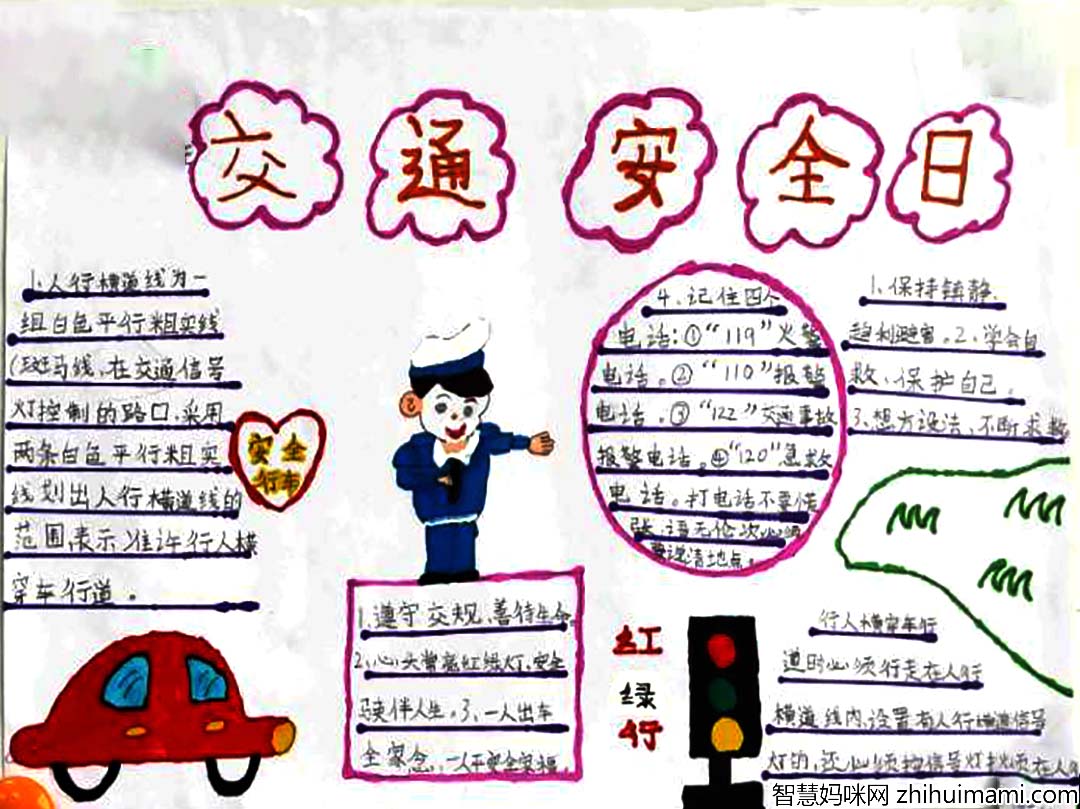 交通安全日
1、人行横道线为一
组白色平行粗实线
(斑马线、在交通信号
灯控制的路口、采用
两条白色平行粗实
线划出人行横道线的
范围、表示、准许行人横
穿车行道。
安全
行车
1、遵守交规、善待生命
2、心头常亮红绿灯、安全
驶伴人生。3、一人出车
全家念、一人平安全家福。
4、记住四个
电话:①“119”火警
电话。②“110”报警
电话。③“122”交通事故
报警电话。④“120”急救
电话。打电话不要慌
张、语无伦次、必须
要说清地点。
1、保持镇静、
趋利避害。2、学会自
救、保护自己。
3、想方设法、不断求救
红
绿
行
行人横穿车行
道时必须行走在人行
横道线内、设置有人行横道信号
灯的、还必须按信号灯
智慧妈咪网 zhihuimami.com